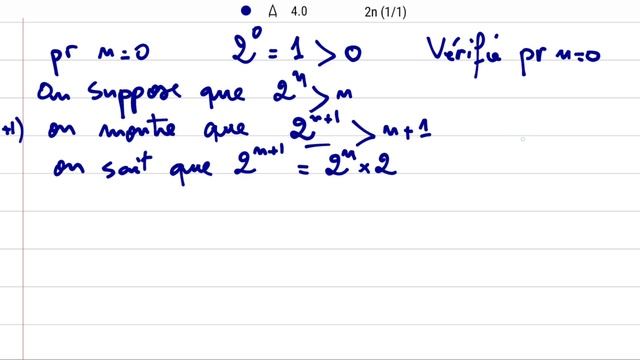 4.0 2n (1/1)
pr n=0 2⁰ = 1 > 0 Vérifié pr n=0
On suppose que 2ⁿ > n
+1) on montre que 2ⁿ⁺¹ > n + 1
on sait que 2ⁿ⁺¹ = 2ⁿ × 2